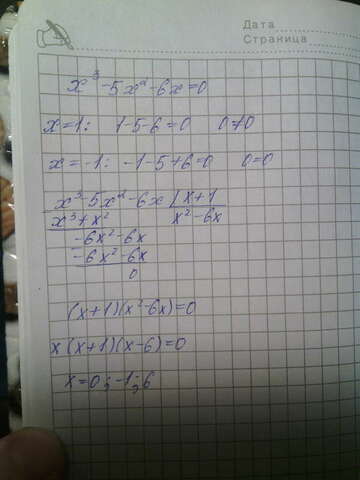 Дата
Страница
x³ - 5x² - 6x = 0
x = 1: 1 - 5 - 6 = 0 0 ≠ 0
x = -1: -1 - 5 + 6 = 0 0 = 0
x³ - 5x² - 6x | x + 1
x³ + x² x² - 6x
-6x² - 6x
-6x² - 6x
0
(x + 1)(x² - 6x) = 0
x(x + 1)(x - 6) = 0
x = 0; -1; 6